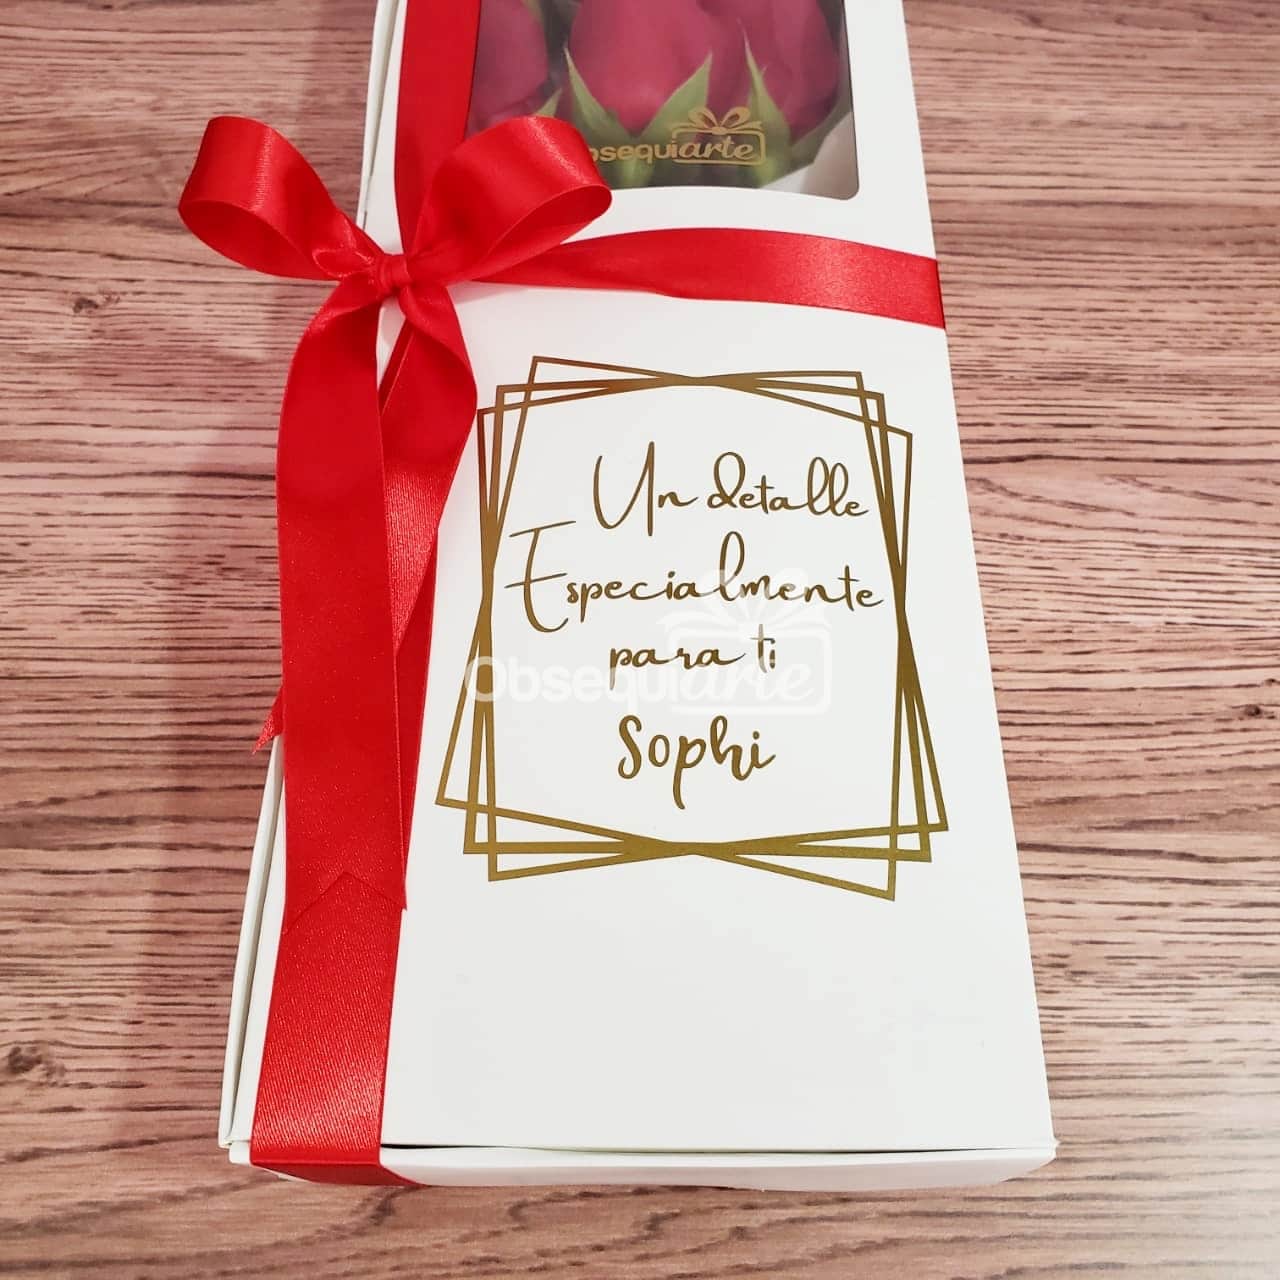 Obsequiarte
Un detalle
Especialmente
para ti
Obsequiarte
Sophi